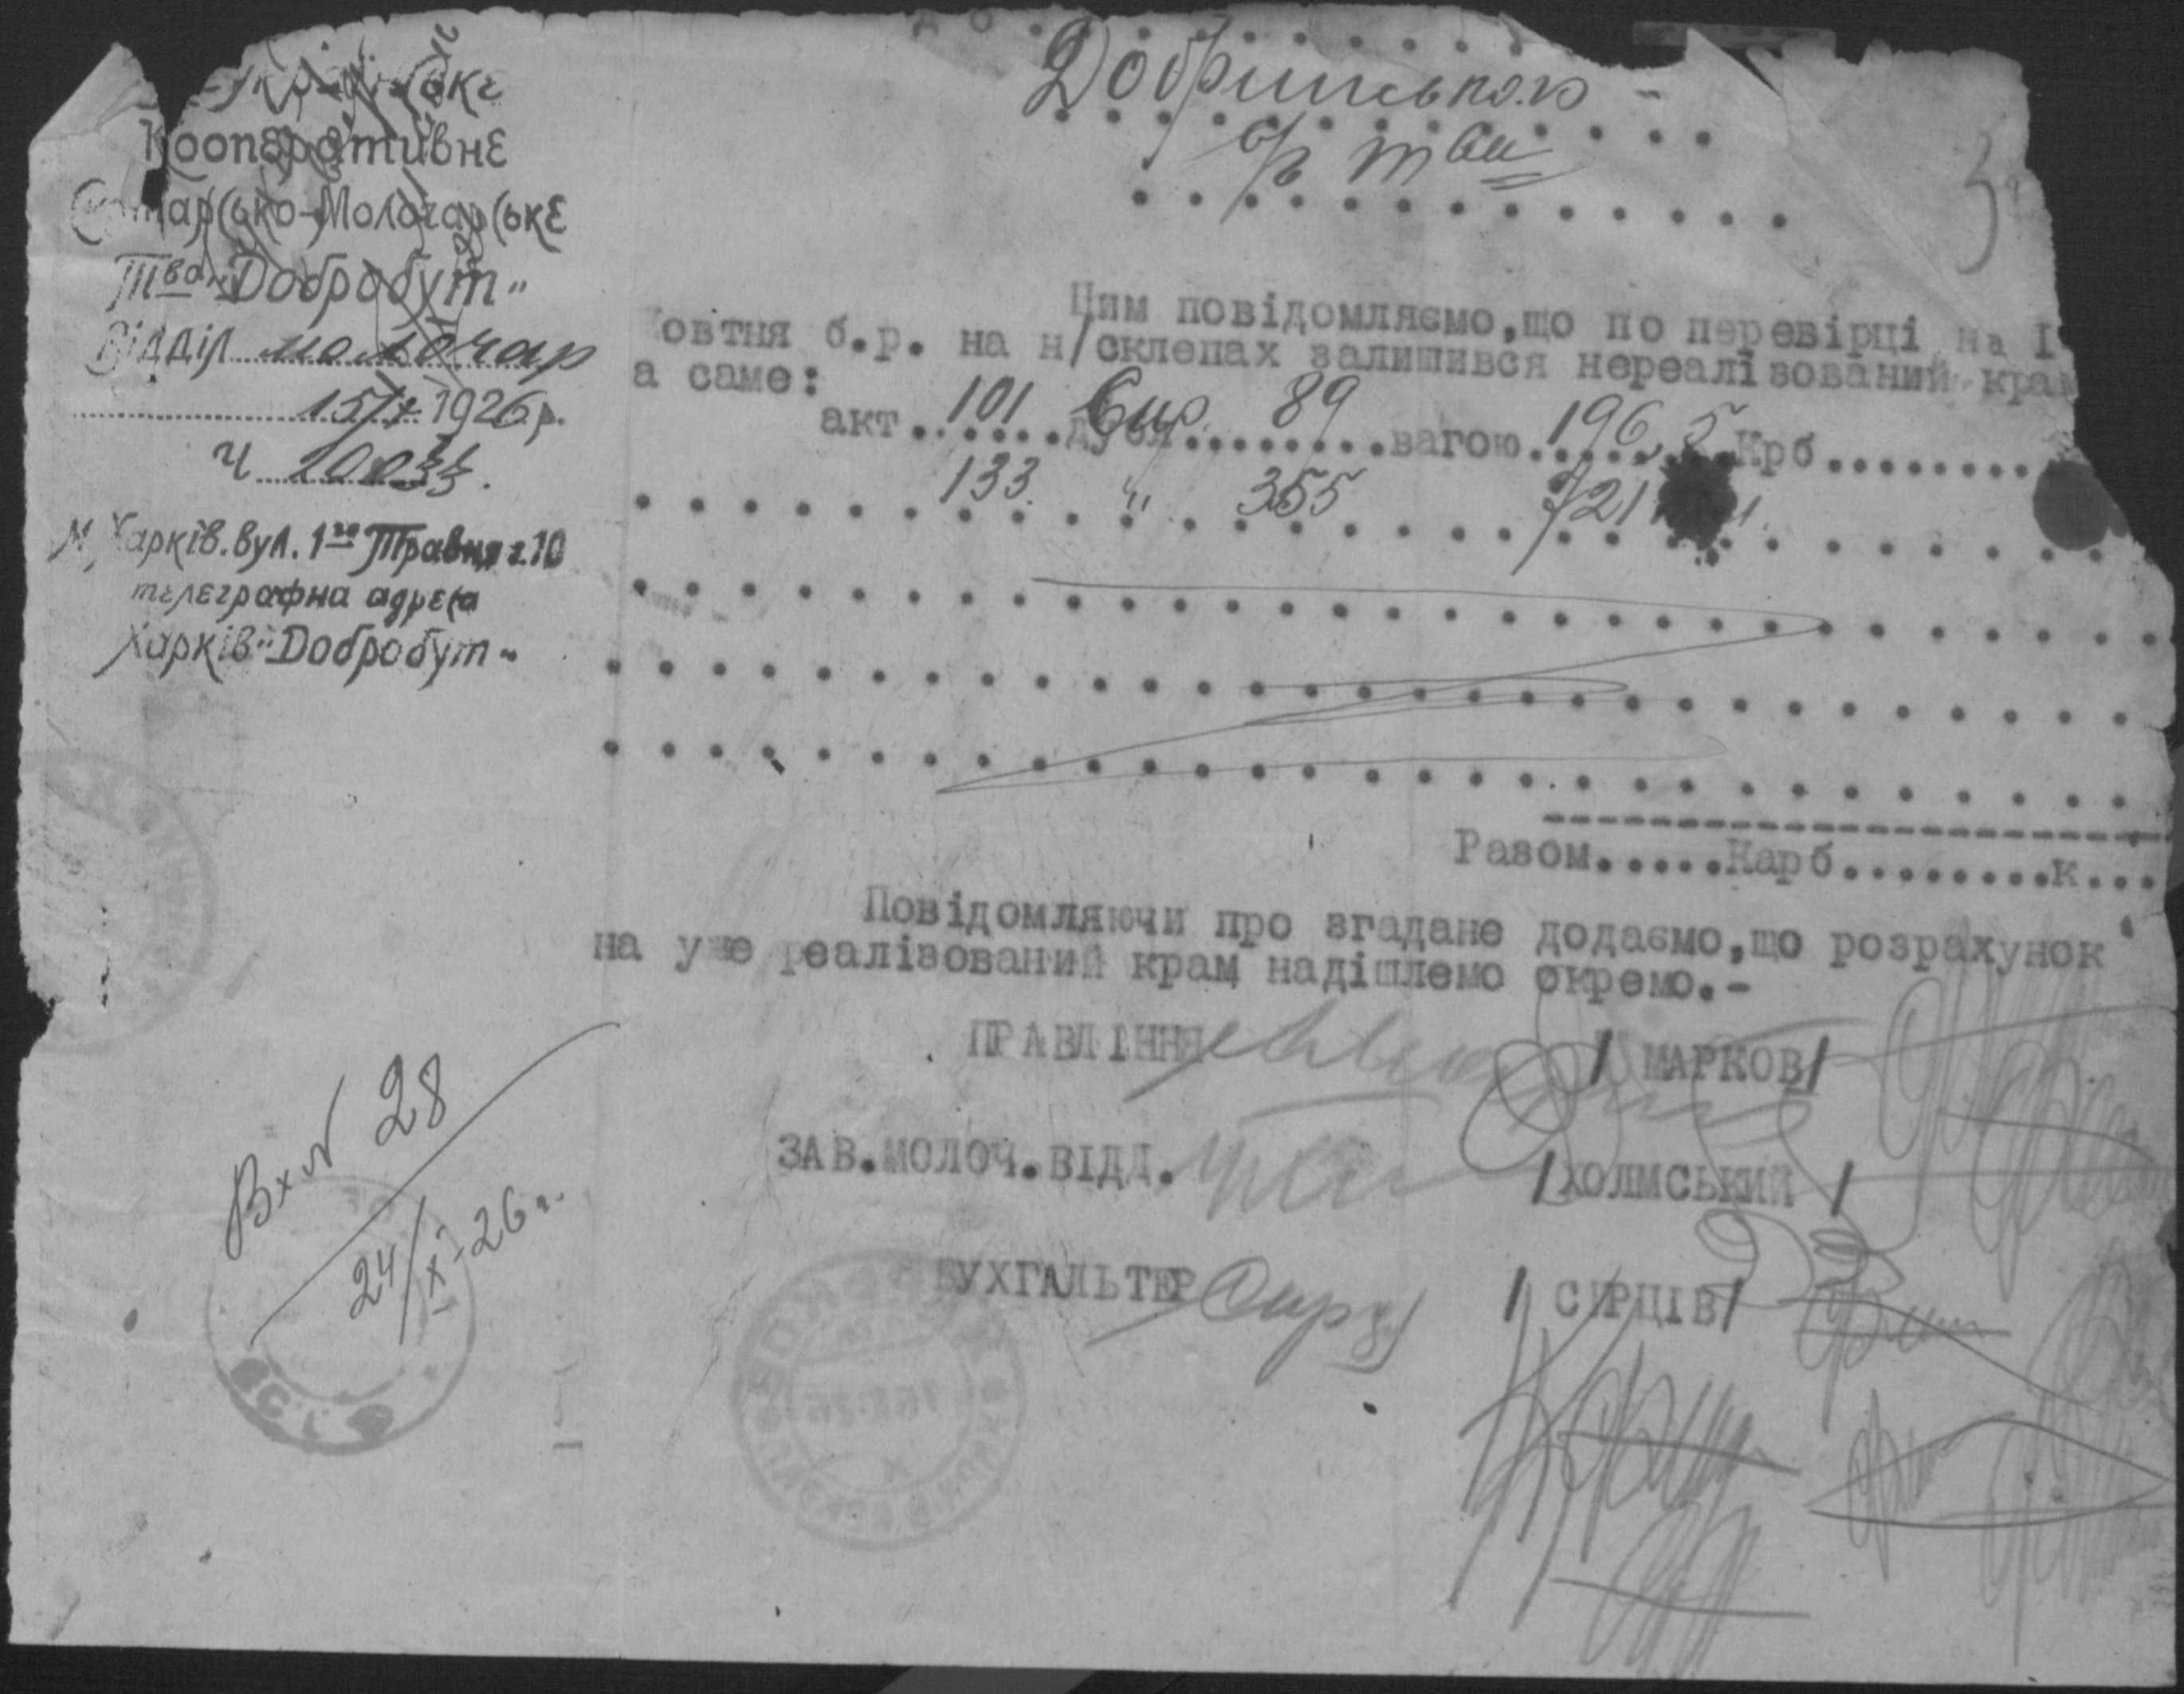 Кооперативне
Скотарсько-Молочарське
Т-во „Добробут"
Відділ молочар
15/X 1926 р.
Ч 20033.
М. Харків. вул. 1го Травня ч. 10
телеграфна адреса
Харків „Добробут"
до
3
Цим повідомляємо, що по перевірці на I
овтня б.р. на н/склепах залишився нереалізований крам
а саме:
акт 101 Сир 89 вагою 196,5 Крб
133 " 355 721
Разом.....Карб........к...
Повідомляючи про згадане додаємо, що розрахунок
на уже реалізований крам надішлемо окремо.-
ПРАВЛІННЯ / МАРКОВ/
ЗАВ.МОЛОЧ.ВІДД. /ХОЛМСЬКИЙ /
БУХГАЛЬТЕР / СИРЦІВ/
Вх № 28
24/X-26 г.